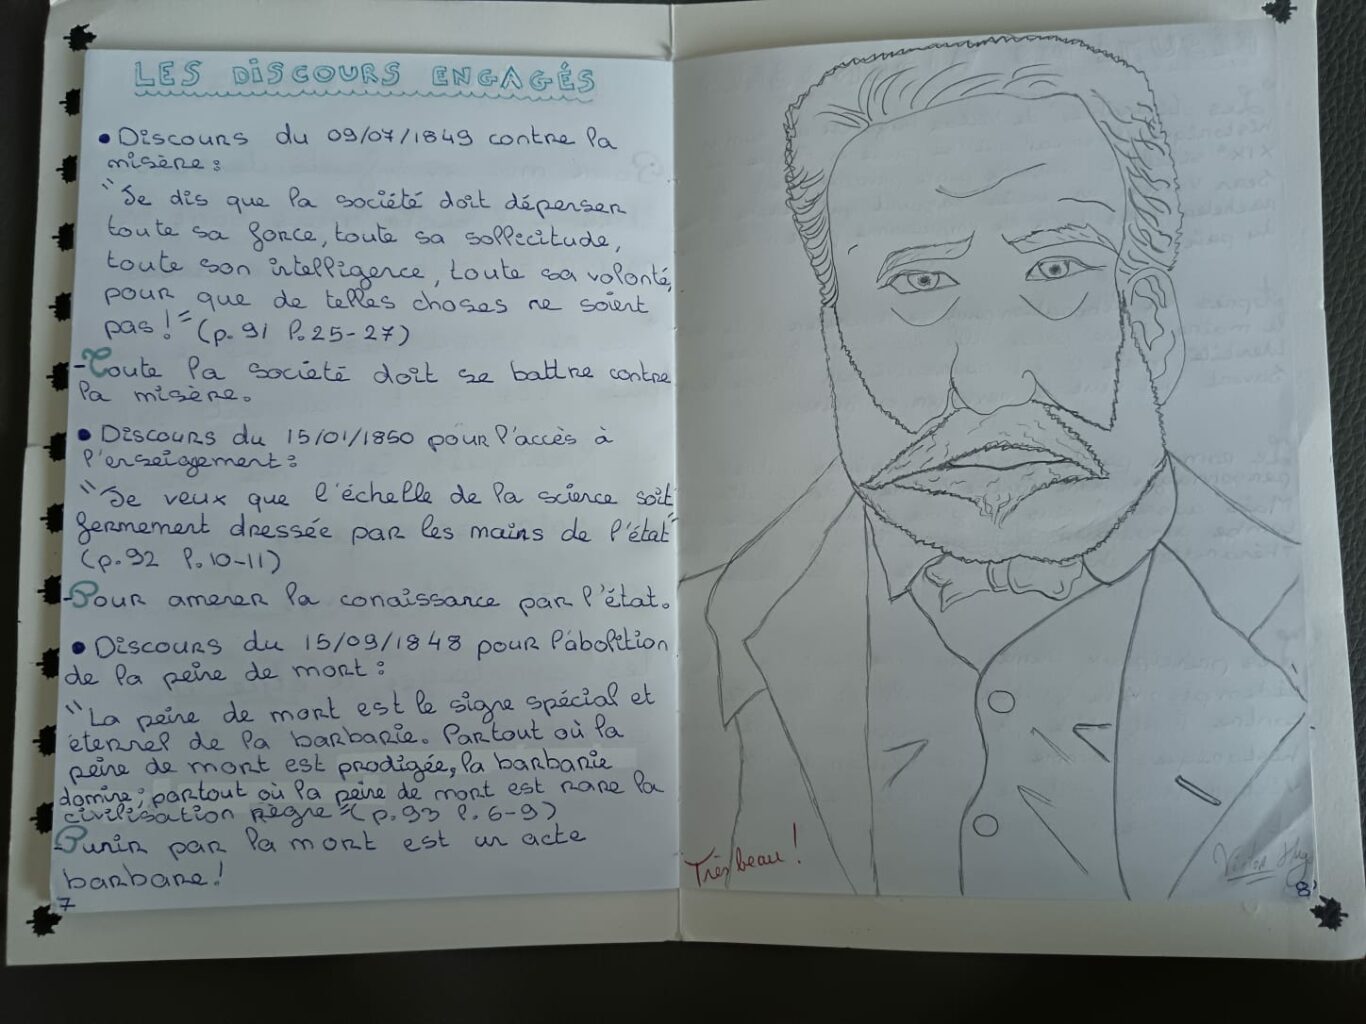 LES DISCOURS ENGAGÉS
• Discours du 09/07/1849 contre la
misère :
"Je dis que la société doit dépenser
toute sa force, toute sa sollicitude,
toute son intelligence, toute sa volonté,
pour que de telles choses ne soient
pas ! " (p. 91 l. 25-27)
- Toute la société doit se battre contre
la misère.
• Discours du 15/01/1850 pour l'accès à
l'enseigement :
"Je veux que l'échelle de la science soit
fermement dressée par les mains de l'état"
(p. 92 l. 10-11)
- Pour amener la conaissance par l'état.
• Discours du 15/09/1848 pour l'abolition
de la peine de mort :
"La peine de mort est le signe spécial et
éternel de la barbarie. Partout où la
peine de mort est prodigée, la barbarie
domine ; partout où la peine de mort est rare la
civilisation règne" (p. 93 l. 6-9)
- Punir par la mort est un acte
barbare !
7
Très beau !
Victor Hugo
8